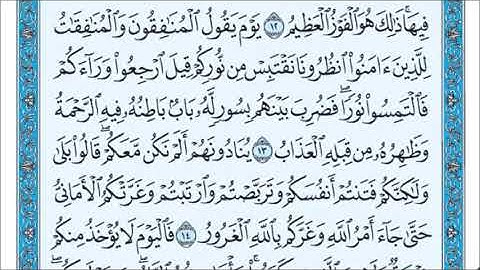 فِيهَا ذَٰلِكَ هُوَ ٱلْفَوْزُ ٱلْعَظِيمُ ١٢ يَوْمَ يَقُولُ ٱلْمُنَٰفِقُونَ وَٱلْمُنَٰفِقَٰتُ
لِلَّذِينَ ءَامَنُوا۟ ٱنظُرُونَا نَقْتَبِسْ مِن نُّورِكُمْ قِيلَ ٱرْجِعُوا۟ وَرَآءَكُمْ
فَٱلْتَمِسُوا۟ نُورًا ۖ فَضُرِبَ بَيْنَهُم بِسُورٍ لَّهُۥ بَابٌۢ بَاطِنُهُۥ فِيهِ ٱلرَّحْمَةُ
وَظَٰهِرُهُۥ مِن قِبَلِهِ ٱلْعَذَابُ ١٣ يُنَادُونَهُمْ أَلَمْ نَكُن مَّعَكُمْ ۖ قَالُوا۟ بَلَىٰ
وَلَٰكِنَّكُمْ فَتَنتُمْ أَنفُسَكُمْ وَتَرَبَّصْتُمْ وَٱرْتَبْتُمْ وَغَرَّتْكُمُ ٱلْأَمَانِىُّ
حَتَّىٰ جَآءَ أَمْرُ ٱللَّهِ وَغَرَّكُم بِٱللَّهِ ٱلْغَرُورُ ١٤ فَٱلْيَوْمَ لَا يُؤْخَذُ مِنكُمْ